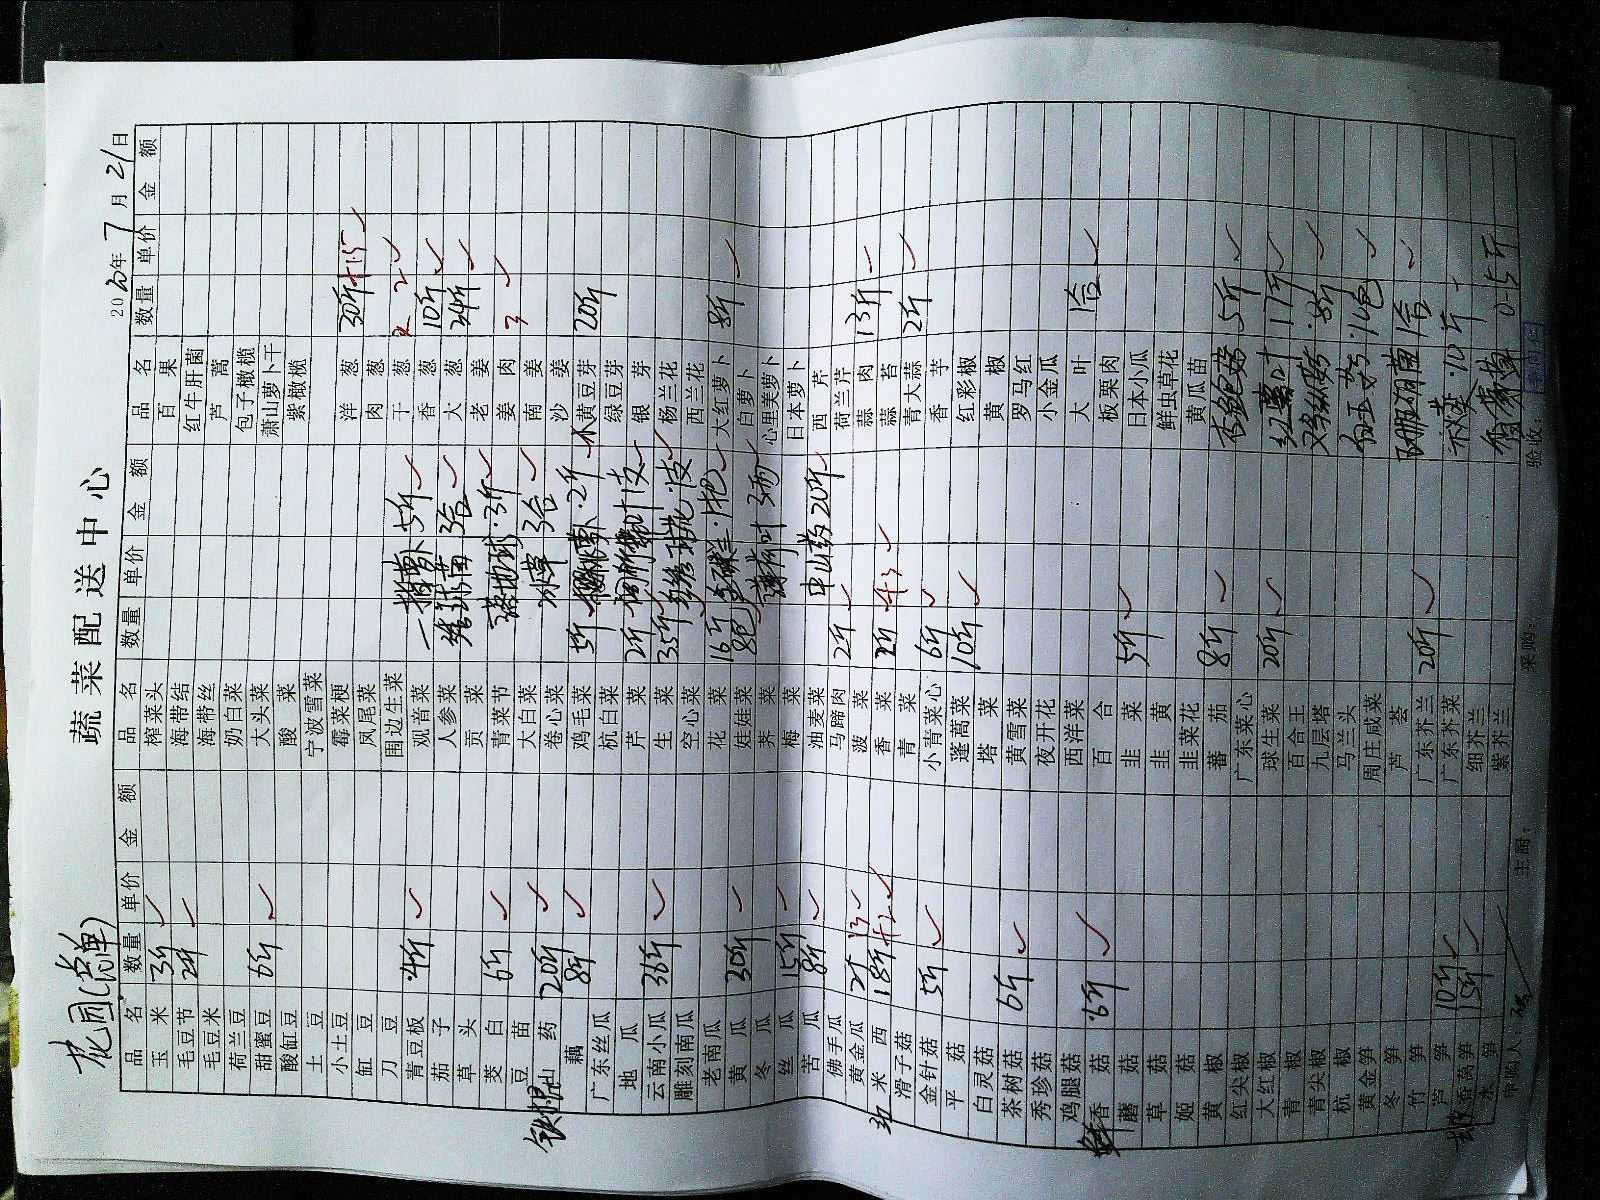 花园(点单)
蔬菜配送中心
20 年 7 月 21 日
品名 数量 单价 金额 品名 数量 单价 金额 品名 数量 单价 金额
玉米 3斤
毛豆节 2斤
毛豆米
荷兰豆
甜蜜豆 6斤
酸缸豆
土豆
小土豆
缸豆
刀豆
青豆板 4斤
茄子
草头
茭白 6斤
豆苗
铁棍山药 20斤
藕 8斤
广东丝瓜
地瓜
云南小瓜 35斤
雕刻南瓜
老南瓜
黄瓜 30斤
冬瓜
丝瓜 15斤
苦瓜 8斤
佛手瓜
黄金瓜 2斤 13
米西 18斤 +2
滑子菇
金针菇 5斤
平菇
白灵菇
茶树菇 6斤
秀珍菇
鸡腿菇
鲜香菇 6斤
蘑菇
草菇
姬菇
黄椒
红尖椒
大红椒
青椒
青尖椒
杭椒
黄金笋
冬笋
竹笋
芦笋 10斤
香莴笋 15斤
水笋
榨菜头
海带结
海带丝
奶白菜
大头菜
酸菜
宁波雪菜
霉菜梗
凤尾菜
围边生菜
观音菜
人参菜
贡菜
青菜节
大白菜
卷心菜
鸡毛菜 5斤
杭白菜
芹菜 2斤
生菜 35斤
空心菜
花菜 16斤
娃娃菜 8包
荠菜
梅菜
油麦菜
马蹄肉 2斤
菠菜
香菜 2斤 +3
青菜
小青菜心 6斤
蓬蒿菜 10斤
塔菜
黄雪菜
夜开花
西洋菜
百合
韭菜 5斤
韭黄
韭菜花
蕃茄 8斤
广东菜心
球生菜 20斤
百合王
九层塔
马兰头
周庄咸菜
芦荟
广东芥兰 20斤
广东芥菜
细芥兰
紫芥兰
5斤
3合
3斤
冰草 3合
2斤
1支
1把
薄荷叶
中山药 20斤
百果
红牛肝菌
芦蒿
包子橄榄
萧山萝卜干
紫橄榄
洋葱 30斤 +15
肉葱
干葱 2
香葱 10斤
大葱 24斤
老姜
姜肉 3
南姜
沙姜
黄豆芽 20斤
绿豆芽
银芽
杨兰花
西兰花
大红萝卜
白萝卜 8斤
心里美萝卜
日本萝卜
西芹
荷兰芹
蒜肉 13斤
蒜苔
青大蒜 2斤
香芋
红彩椒
黄椒
罗马红
小金瓜
大叶 1合
板栗肉
日本小瓜
鲜虫草花
黄瓜苗
杏鲍菇 5斤
红薯叶 17斤
8斤
白玉菇 14包
1合
斤
0.5斤
申购人:
主厨:
采购:
验收: